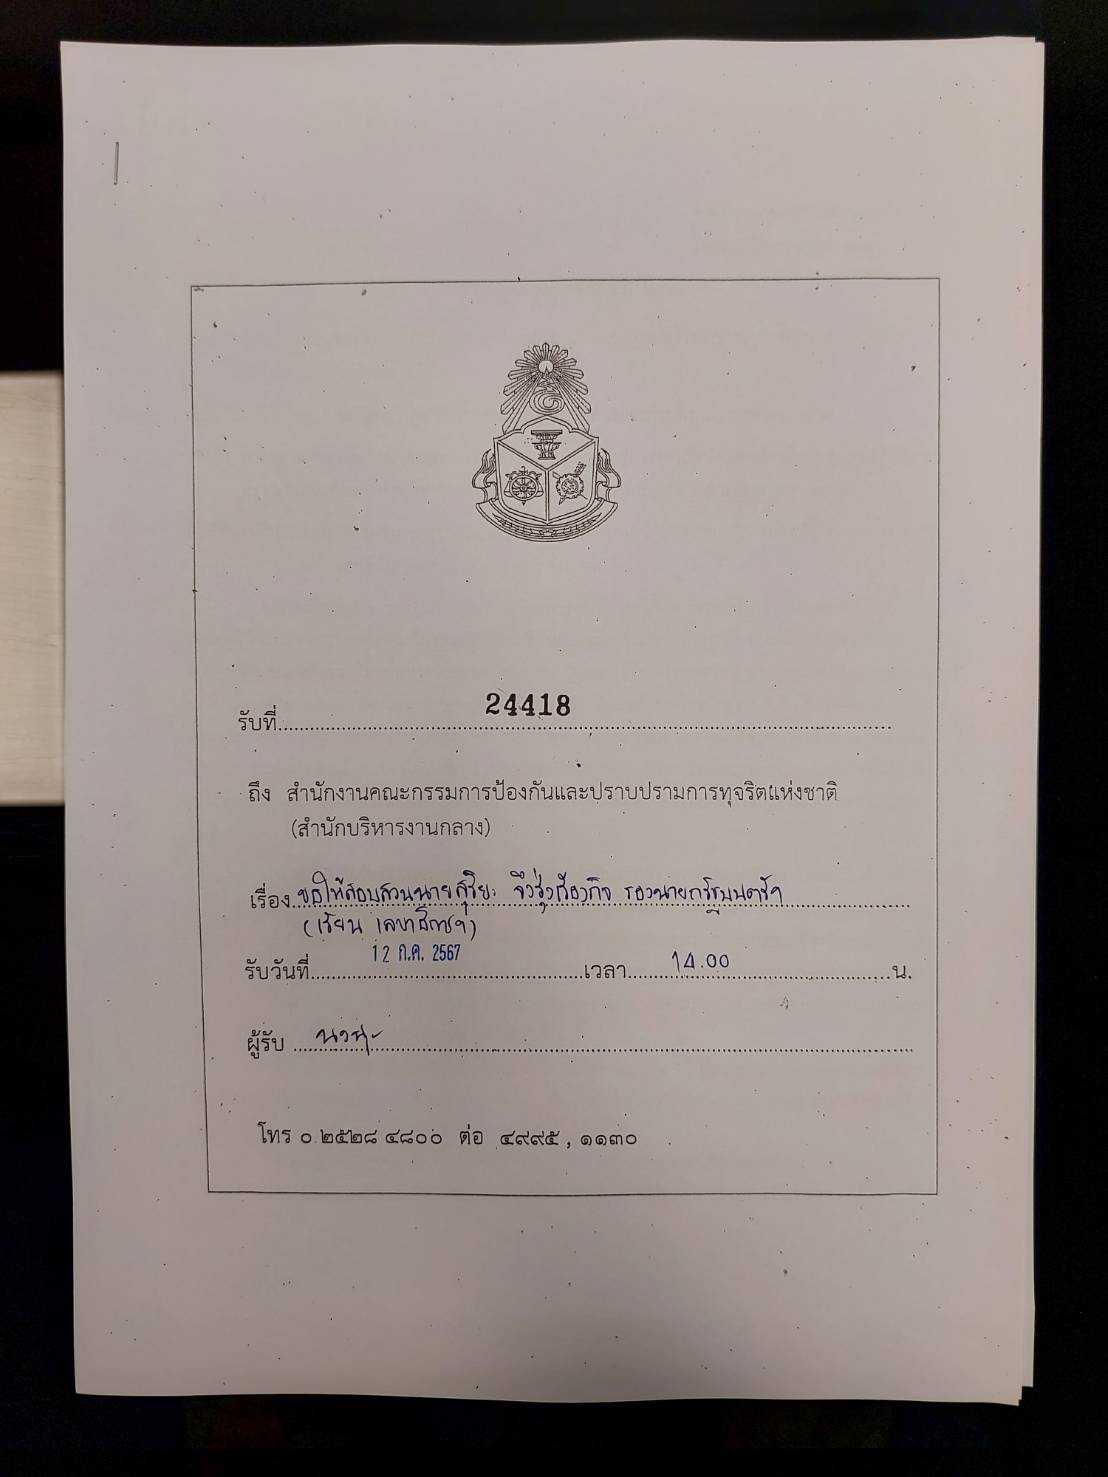 รับที่ 24418
ถึง สำนักงานคณะกรรมการป้องกันและปราบปรามการทุจริตแห่งชาติ
(สำนักบริหารงานกลาง)
เรื่อง ขอให้สอบสวนนายสุริยะ จึงรุ่งเรืองกิจ รองนายกรัฐมนตรีฯ
(เรียน เลขาธิการฯ)
รับวันที่ 12 ก.ค. 2567 เวลา 14.00 น.
ผู้รับ
โทร ๐ ๒๕๒๘ ๔๘๐๐ ต่อ ๔๙๙๕ , ๑๑๓๐